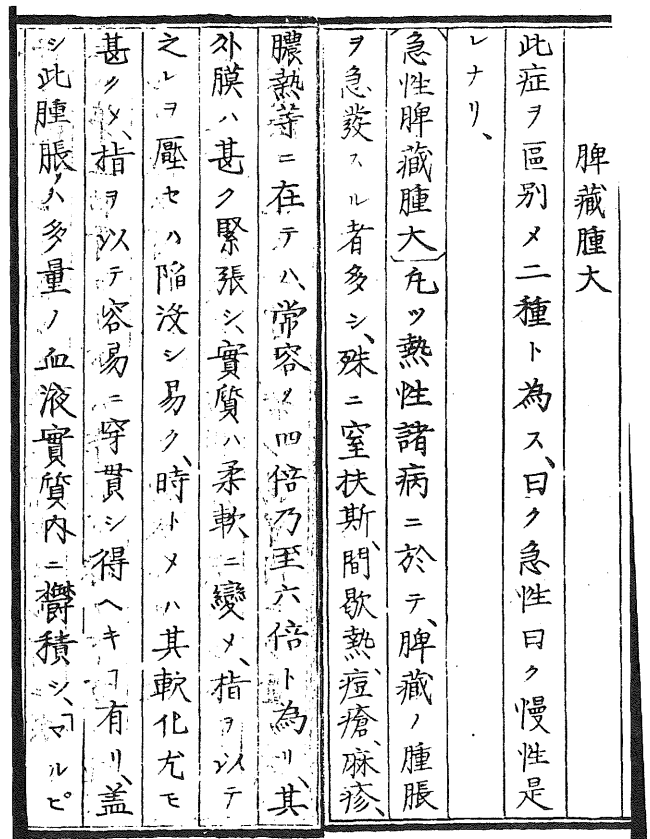 脾藏腫大
此症ヲ區别メ二種ト為ス、曰ク急性曰ク慢性是
レナリ、
〔急性脾藏腫大〕凢ッ熱性諸病ニ於テ、脾藏ノ腫脹
ヲ急發スル者多シ、殊ニ窒扶斯、間歇熱、痘瘡、麻疹、
膿熱等ニ在テハ、常容ノ四倍乃至六倍ト為リ、其
外膜ハ甚ク緊張シ、實質ハ柔軟ニ變メ、指ヲ以テ
之レヲ壓セハ陷没シ易ク、時トメハ其軟化尤モ
甚クメ、指ヲ以テ容易ニ穿貫シ得ヘキヿ有リ、盖
シ此腫脹ハ多量ノ血液實質内ニ欝積シ、「マルピ